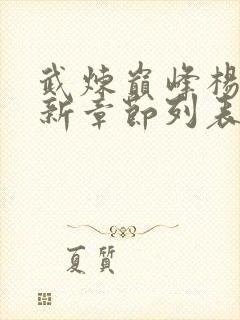 武煉巔峰楊
新章節列表
夏質